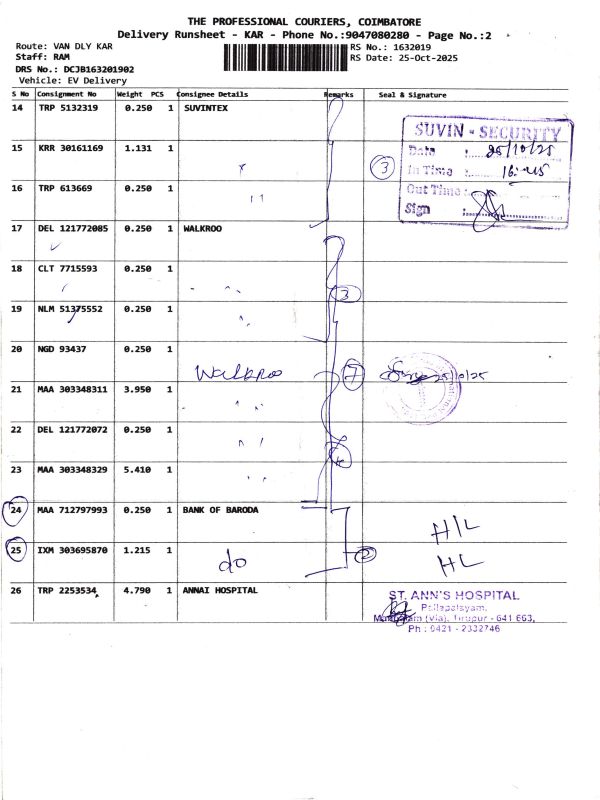 THE PROFESSIONAL COURIERS, COIMBATORE
Delivery Runsheet - KAR - Phone No.:9047080280 - Page No.:2
Route: VAN DLY KAR
Staff: RAM
DRS No.: DCJB163201902
Vehicle: EV Delivery
RS No.: 1632019
RS Date: 25-Oct-2025
S No Consignment No Weight PCS Consignee Details Remarks Seal & Signature
14 TRP 5132319 0.250 1 SUVINTEX
SUVIN - SECURITY
Date : 25/10/25
In Time : 16:45
Out Time :
Sign :
15 KRR 30161169 1.131 1
3
16 TRP 613669 0.250 1 "
17 DEL 121772085 0.250 1 WALKROO
18 CLT 7715593 0.250 1 "
3
19 NLM 51375552 0.250 1 "
20 NGD 93437 0.250 1
Walkroo 7 25/10/25
21 MAA 303348311 3.950 1 "
22 DEL 121772072 0.250 1 "
23 MAA 303348329 5.410 1
24 MAA 712797993 0.250 1 BANK OF BARODA
H/L
25 IXM 303695870 1.215 1 do 2 HL
26 TRP 2253534 4.790 1 ANNAI HOSPITAL
ST. ANN'S HOSPITAL
(Via), Tirupur - 641 663,
Ph : 0421 - 2332746